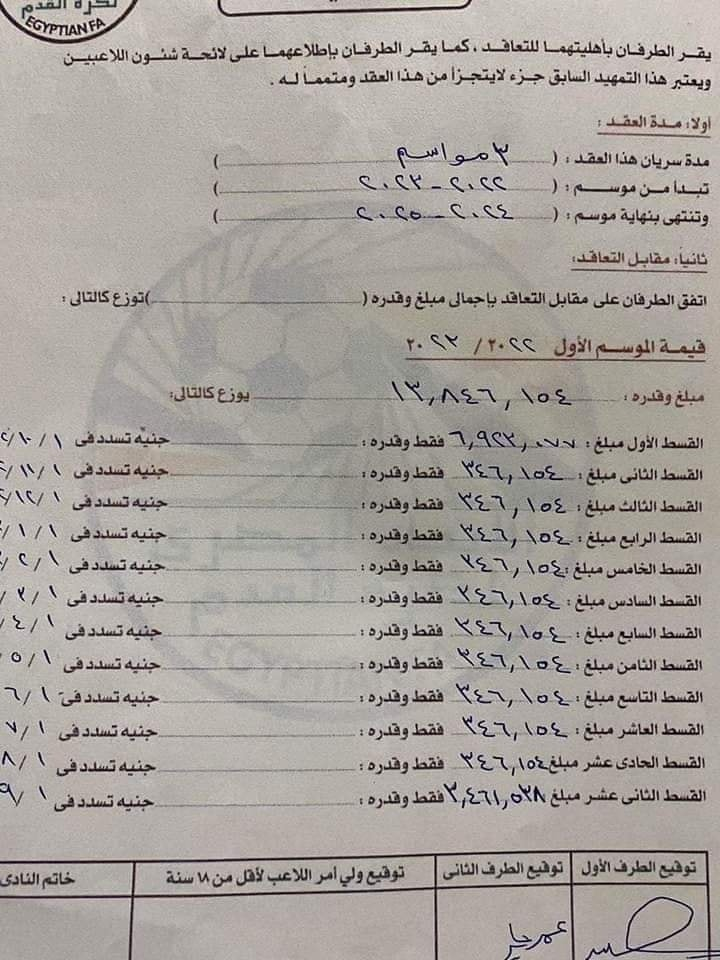 لكرة القدم
EGYPTIAN FA
يقر الطرفان بأهليتهما للتعاقد ، كما يقر الطرفان بإطلاعهما على لائحة شئون اللاعبين
ويعتبر هذا التمهيد السابق جزء لايتجزأ من هذا العقد ومتمماً له .
أولا: مدة العقد :
مدة سريان هذا العقد : ( ٣ مواسم )
تبدأ من موسم : ( ٢٠٢٢ - ٢٠٢٣ )
وتنتهى بنهاية موسم : ( ٢٠٢٤ - ٢٠٢٥ )
ثانيا: مقابل التعاقد:
اتفق الطرفان على مقابل التعاقد بإجمالى مبلغ وقدره ( )توزع كالتالى :
قيمة الموسم الأول ٢٠٢٢ / ٢٠٢٣
مبلغ وقدره : ١٣,٨٤٦,١٥٤ يوزع كالتالى:
القسط الأول مبلغ : ٦,٩٢٣,٠٧٧ فقط وقدره : جنيه تسدد فى ١٠/١
القسط الثانى مبلغ : ٣٤٦,١٥٤ فقط وقدره : جنيه تسدد فى ١١/١
القسط الثالث مبلغ : ٣٤٦,١٥٤ فقط وقدره : جنيه تسدد فى ١٢/١
القسط الرابع مبلغ : ٣٤٦,١٥٤ فقط وقدره : جنيه تسدد فى ١/١
القسط الخامس مبلغ : ٣٤٦,١٥٤ فقط وقدره : جنيه تسدد فى ٢/١
القسط السادس مبلغ : ٣٤٦,١٥٤ فقط وقدره : جنيه تسدد فى ٣/١
القسط السابع مبلغ : ٣٤٦,١٥٤ فقط وقدره : جنيه تسدد فى ٤/١
القسط الثامن مبلغ : ٣٤٦,١٥٤ فقط وقدره : جنيه تسدد فى ٥/١
القسط التاسع مبلغ : ٣٤٦,١٥٤ فقط وقدره : جنيه تسدد فى ٦/١
القسط العاشر مبلغ : ٣٤٦,١٥٤ فقط وقدره : جنيه تسدد فى ٧/١
القسط الحادى عشر مبلغ ٣٤٦,١٥٤ فقط وقدره : جنيه تسدد فى ٨/١
القسط الثانى عشر مبلغ ٣,٤٦١,٥٣٨ فقط وقدره : جنيه تسدد فى ٩/١
توقيع الطرف الأول توقيع الطرف الثانى توقيع ولي أمر اللاعب لأقل من ١٨ سنة خاتم النادى